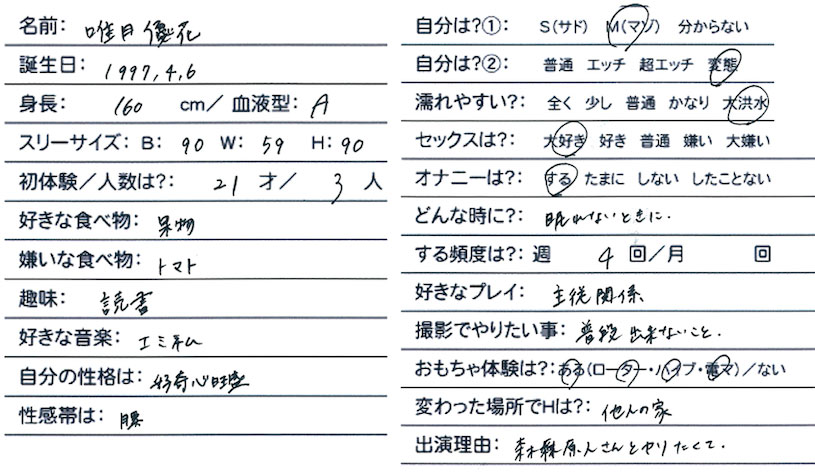 名前： 唯月優花
誕生日： 1997,4,6
身長： 160 cm／血液型： A
スリーサイズ： B： 90 W： 59 H： 90
初体験／人数は？： 21 才／ 3 人
好きな食べ物： 果物
嫌いな食べ物： トマト
趣味： 読書
好きな音楽： エミネム
自分の性格は： 好奇心旺盛
性感帯は： 腰
自分は？①： S（サド） M（マゾ） 分からない
自分は？②： 普通 エッチ 超エッチ 変態
濡れやすい？： 全く 少し 普通 かなり 大洪水
セックスは？： 大好き 好き 普通 嫌い 大嫌い
オナニーは？： する たまに しない したことない
どんな時に？： 眠れないときに.
する頻度は？： 週 4 回／月 回
好きなプレイ： 主従関係
撮影でやりたい事： 普段出来ないこと.
おもちゃ体験は？： ある（ローター・バイブ・電マ）／ない
変わった場所でHは？： 他人の家
出演理由： さんとヤりたくて.